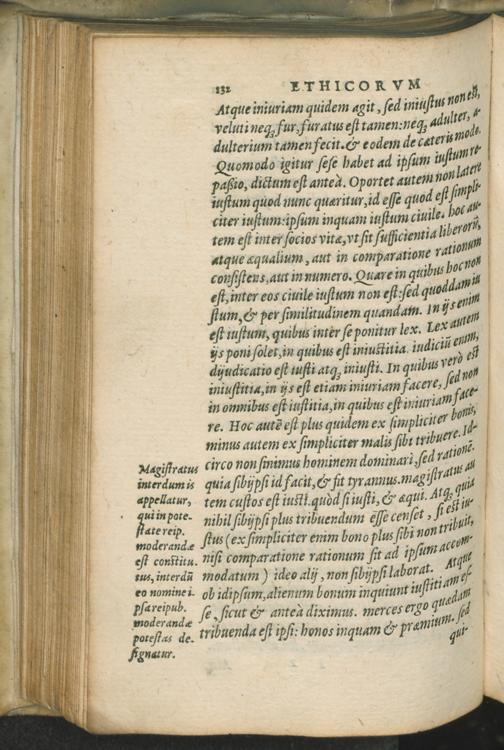 132 ETHICORVM
Atque iniuriam quidem agit, sed iniustus non est,
veluti neq; fur, furatus est tamen: neq; adulter, a-
dulterium tamen fecit. & eodem de cæteris modo.
Quomodo igitur sese habet ad ipsum iustum re-
passio, dictum est anteà. Oportet autem non latere
iustum quod nunc quæritur, id esse quod est simpli-
citer iustum: ipsum inquam iustum ciuile. hoc au-
tem est inter socios vitæ, vt sit sufficientia liberorũ,
atque æqualium, aut in comparatione rationum
consistens, aut in numero. Quare in quibus hoc non
est, inter eos ciuile iustum non est: sed quoddam iu
stum, & per similitudinem quandam. In ijs enim
est iustum, quibus inter se ponitur lex. Lex autem
ijs poni solet, in quibus est iniustitia. iudiciũ enim,
dijudicatio est iusti atq; iniusti. In quibus verò est
iniustitia, in ijs est etiam iniuriam facere, sed non
in omnibus est iustitia, in quibus est iniuriam face-
re. Hoc autẽ est plus quidem ex simpliciter bonis,
minus autem ex simpliciter malis sibi tribuere. Id-
circo non sinimus hominem dominari, sed rationẽ.
quia sibijpsi id facit, & fit tyrannus. magistratus au
tem custos est iusti. quòd si iusti, & æqui. Atq; quia
nihil sibijpsi plus tribuendum esse censet, si est iu-
stus (ex simpliciter enim bono plus sibi non tribuit,
nisi comparatione rationum sit ad ipsum accom-
modatum) ideo alij, non sibijpsi laborat. Atque
ob idipsum, alienum bonum inquiunt iustitiam es-
se, sicut & anteà diximus. merces ergo quædam
tribuenda est ipsi: honos inquam & præmium. sed
qui-
Magistratus
interdum is
appellatur,
qui in pote-
state reip.
moderandæ
est constitu.
tus, interdũ
eo nomine i-
psa reipub.
moderandæ
potestas de-
signatur.